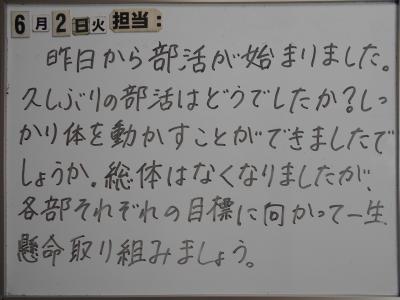 6月2日火担当:
昨日から部活が始まりました。
久しぶりの部活はどうでしたか?しっ
かり体を動かすことができましたで
しょうか。総体はなくなりましたが、
各部それぞれの目標に向かって一生
懸命取り組みましょう。